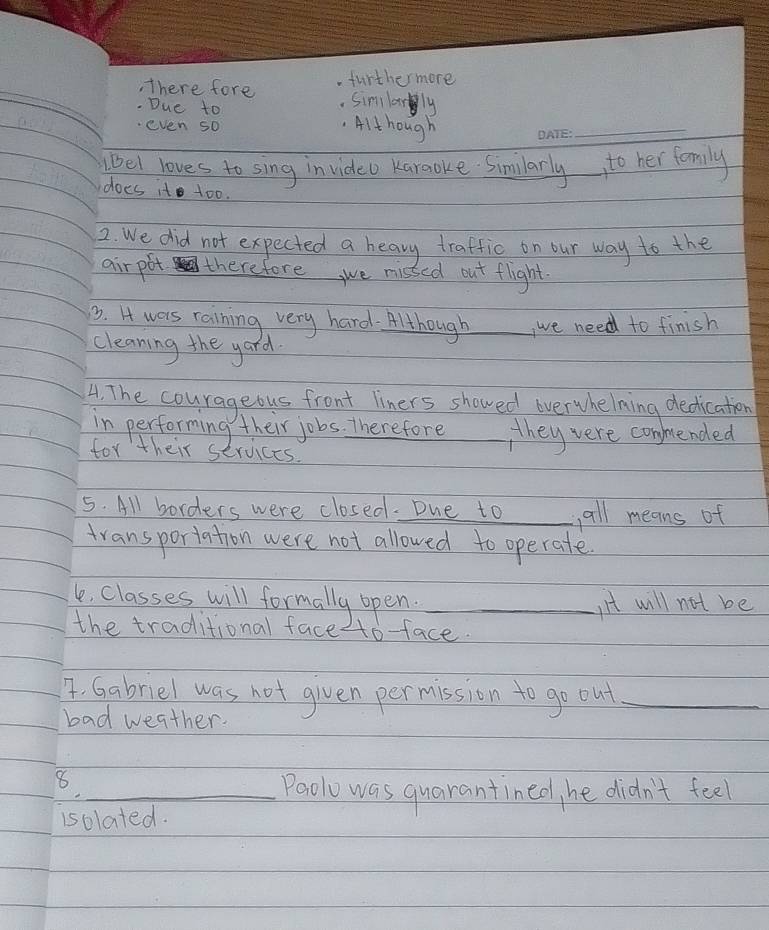 · There fore
· furthermore
· Due to
· Similarly
· even so
· Although
DATE:
1. Bel loves to sing in video karaoke. Similarly, to her family
does it too.
2. We did not expected a heavy traffic on our way to the
air pot therefore, we missed out flight.
3. It was raining very hard. Although, we need to finish
cleaning the yard.
4. The courageous front liners showed overwhelming dedication
in performing their jobs. Therefore, they were commended
for their services.
5. All borders were closed. Due to, all means of
transportation were not allowed to operate.
6. Classes will formally open. ________, it will not be
the traditional face-to-face.
7. Gabriel was not given permission to go out ________
bad weather.
8. ________ Paolo was quarantined, he didn't feel
isolated.